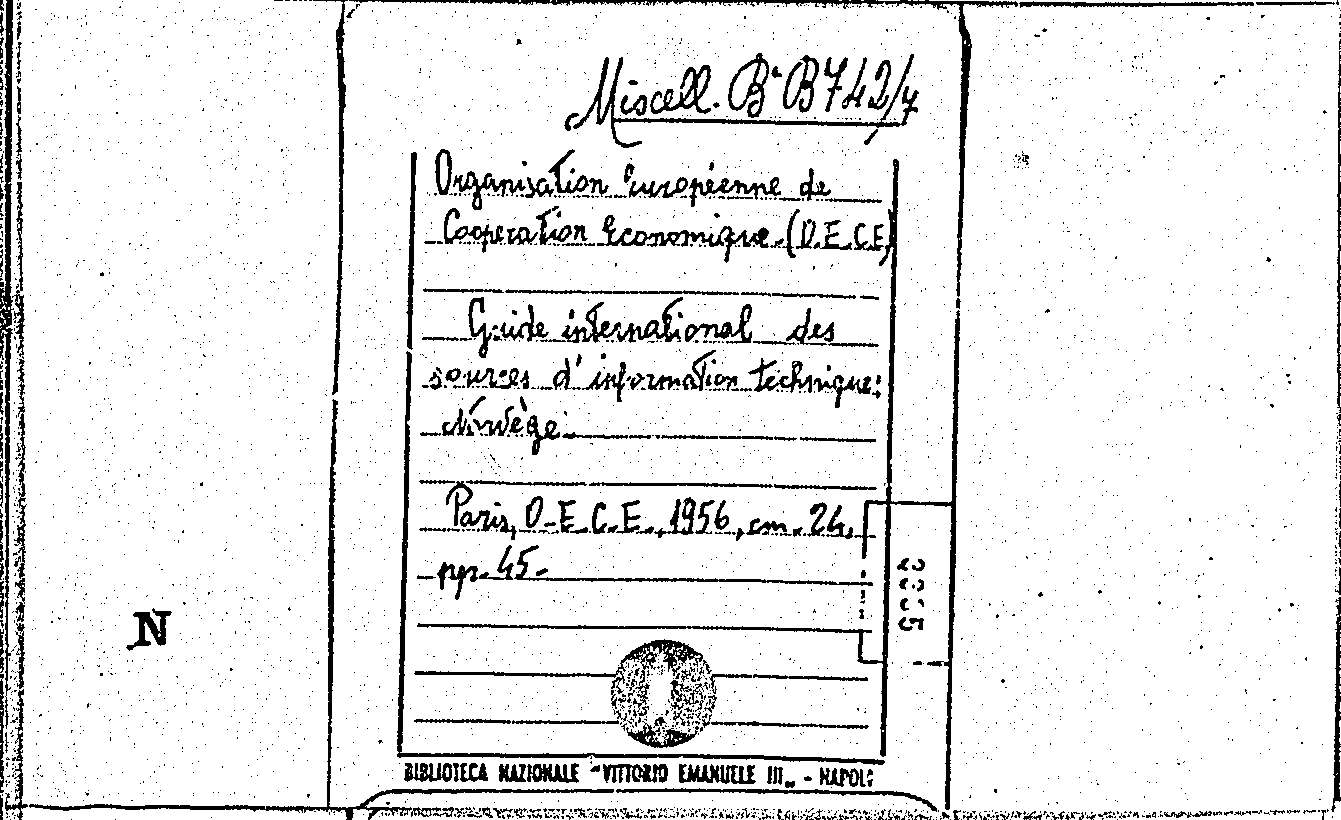 Miscell. B. B742/7
Organisation européenne de
Cooperation économique. (O.E.C.E)
Guide international des
sources d'information technique:
Norvège.
Paris, O.E.C.E., 1956, cm. 24,
pp. 45.
N
BIBLIOTECA NAZIONALE "VITTORIO EMANUELE III„ - NAPOLI